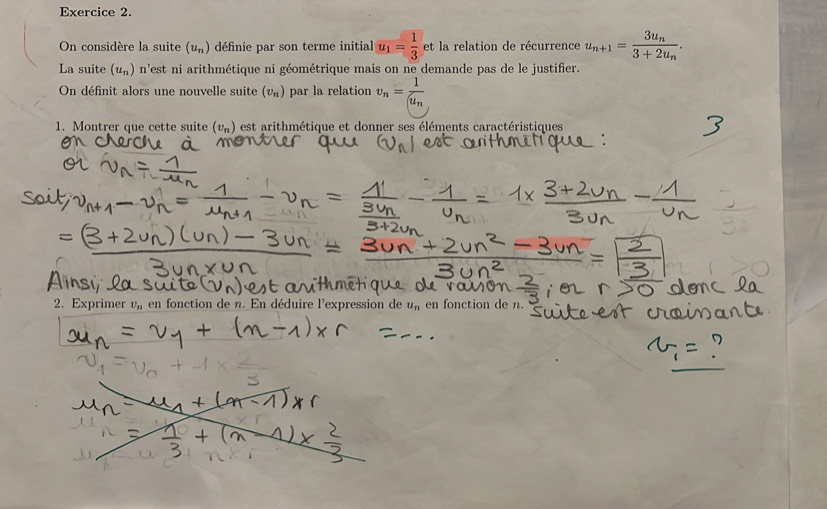 Exercice 2.
On considère la suite (uₙ) définie par son terme initial u₁ = 1/3 et la relation de récurrence uₙ₊₁ = 3uₙ/(3 + 2uₙ).
La suite (uₙ) n'est ni arithmétique ni géométrique mais on ne demande pas de le justifier.
On définit alors une nouvelle suite (vₙ) par la relation vₙ = 1/uₙ
1. Montrer que cette suite (vₙ) est arithmétique et donner ses éléments caractéristiques
3
on cherche à montrer que (vₙ) est arithmétique :
or vₙ = 1/uₙ
soit, vₙ₊₁ - vₙ = 1/uₙ₊₁ - vₙ = 1/(3uₙ/(3+2uₙ)) - 1/uₙ = 1 × (3+2uₙ)/3uₙ - 1/uₙ
= ((3+2uₙ)(uₙ) - 3uₙ)/(3uₙ×uₙ) = (3uₙ + 2uₙ² - 3uₙ)/3uₙ² = 2/3
Ainsi, la suite (vₙ) est arithmétique de raison 2/3 ; or r > 0 donc la
suite est croissante.
2. Exprimer vₙ en fonction de n. En déduire l'expression de uₙ en fonction de n.
uₙ = v₁ + (n-1)×r = ...
v₁ = ?
uₙ = u₁ + (n-1)×r
= 1/3 + (n-1) × 2/3